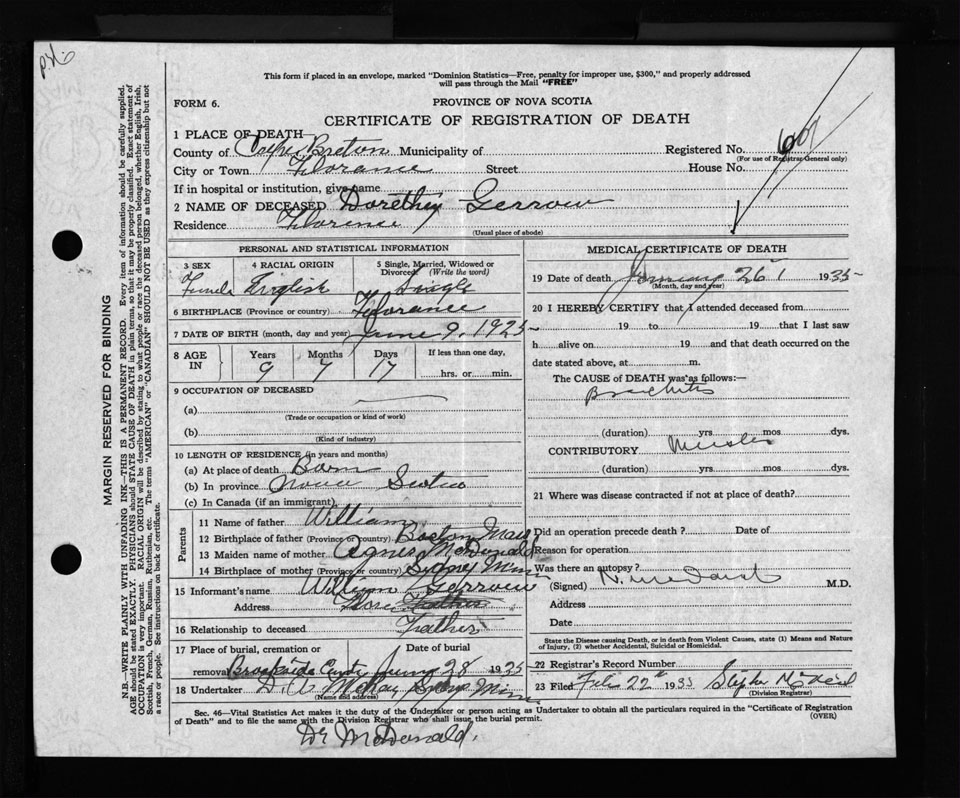 This form if placed in an envelope, marked "Dominion Statistics—Free, penalty for improper use, $300," and properly addressed
will pass through the Mail "FREE"
FORM 6.
PROVINCE OF NOVA SCOTIA
CERTIFICATE OF REGISTRATION OF DEATH
1 PLACE OF DEATH
County of Cape Breton Municipality of Registered No.
(For use of Registrar-General only)
City or Town Florance Street House No.
If in hospital or institution, give name
2 NAME OF DECEASED Dorethy Gerrow
Residence Florence
(Usual place of abode)
PERSONAL AND STATISTICAL INFORMATION
3 SEX 4 RACIAL ORIGIN 5 Single, Married, Widowed or Divorced (Write the word)
English Single
6 BIRTHPLACE (Province or country) Florance
7 DATE OF BIRTH (month, day and year) June 9, 1925
8 AGE IN Years Months Days If less than one day,
9 7 17 hrs. or min.
9 OCCUPATION OF DECEASED
(a)
(Trade or occupation or kind of work)
(b)
(Kind of industry)
10 LENGTH OF RESIDENCE (in years and months)
(a) At place of death Born
(b) In province Nova Scotia
(c) In Canada (if an immigrant)
Parents
11 Name of father William
12 Birthplace of father (Province or country) Boston Mass
13 Maiden name of mother Agnes McDonald
14 Birthplace of mother (Province or country) Sydney Mines
15 Informant's name William Gerrow
Address Flore Father
16 Relationship to deceased Father
17 Place of burial, cremation or removal Date of burial
28 1935
18 Undertaker D. A. McKay Sydney Mines
(Name and address)
MEDICAL CERTIFICATE OF DEATH
19 Date of death January 26 1935
(Month, day and year)
20 I HEREBY CERTIFY that I attended deceased from
19 to 19 that I last saw
h alive on 19 and that death occurred on the
date stated above, at m.
The CAUSE of DEATH was as follows:—
Bronchitis
(duration) yrs. mos. dys.
CONTRIBUTORY Measles
(duration) yrs. mos. dys.
21 Where was disease contracted if not at place of death?
Did an operation precede death? Date of
Reason for operation
Was there an autopsy?
(Signed) M.D.
Address
Date
State the Disease causing Death, or in death from Violent Causes, state (1) Means and Nature
of Injury, (2) whether Accidental, Suicidal or Homicidal.
22 Registrar's Record Number
23 Filed Feb 22 1935
(Division Registrar)
Sec. 46—Vital Statistics Act makes it the duty of the Undertaker or person acting as Undertaker to obtain all the particulars required in the "Certificate of Registration
of Death" and to file the same with the Division Registrar who shall issue the burial permit.
(OVER)
Dr McDonald.
MARGIN RESERVED FOR BINDING
N.B.—WRITE PLAINLY WITH UNFADING INK—THIS IS A PERMANENT RECORD. Every item of information should be carefully supplied.
AGE should be stated EXACTLY. PHYSICIANS should STATE CAUSE OF DEATH in plain terms, so that it may be properly classified. Exact statement of
OCCUPATION is very important. RACIAL ORIGIN will be described by stating to what people or race the deceased person belonged, whether English, Irish,
Scottish, French, German, Russian, Ruthenian, etc. The terms "AMERICAN" or "CANADIAN" SHOULD NOT BE USED as they express citizenship but not
a race or people. See instructions on back of certificate.